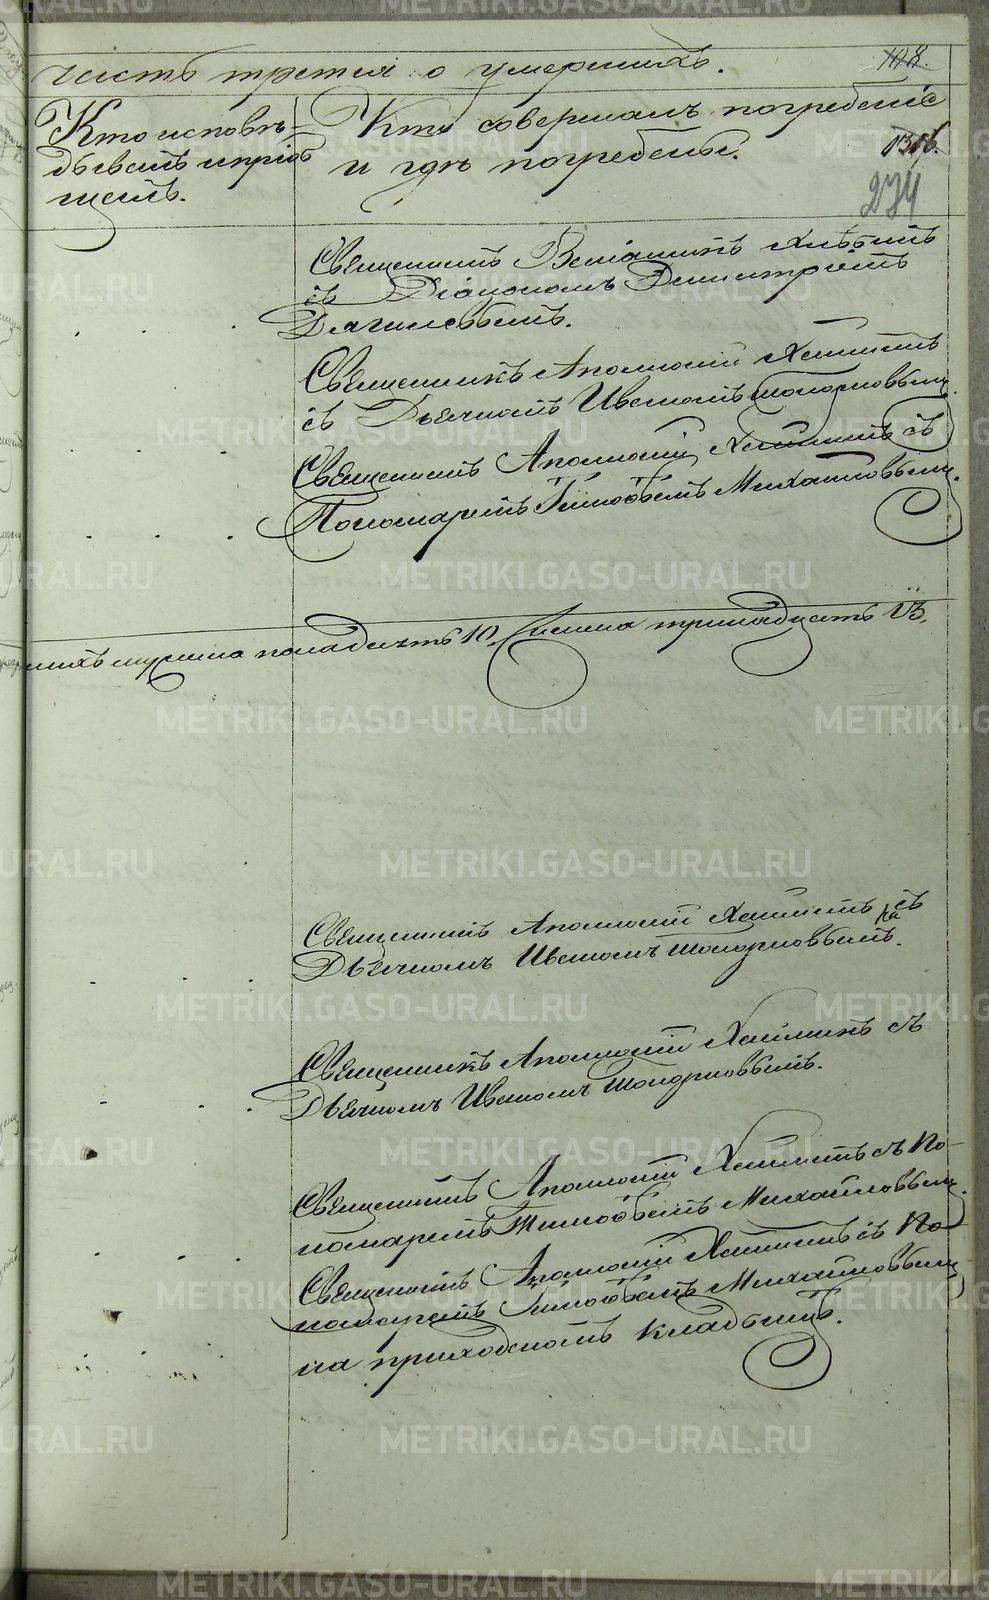 часть третья о умершихъ.
108.
Кто исповѣ-
дывалъ и пріоб
щалъ.
Кто совершалъ погребеніе
и гдѣ погребены.
234
Священникъ Веніаминъ
съ Діакономъ Димитріемъ
Священникъ Аполлоній Хлынинъ
съ Дьячкомъ Иваномъ
Священникъ Аполлоній Хлынинъ съ
Пономаремъ Тимоѳеемъ Михайловымъ.
мужеска пола десять 10. Женска тринадцать 13.
Священникъ Аполлоній Хлынинъ съ
Дьячкомъ Иваномъ
Священникъ Аполлоній Хлынинъ съ
Дьячкомъ Иваномъ
Священникъ Аполлоній Хлынинъ съ По-
номаремъ Тимоѳеемъ Михайловымъ.
Священникъ Аполлоній Хлынинъ съ По-
номаремъ Тимоѳеемъ Михайловымъ
на приходскомъ кладбищѣ.
METRIKI.GASO-URAL.RU